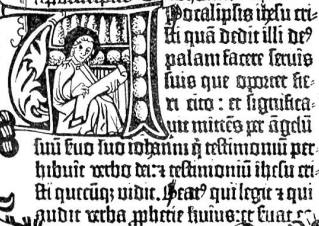 Apocalipsis ihesu cri-
sti quā dedit illi deꝰ
palam facere seruis
suis que oportet fie-
ri cito : et significa-
uit mittēs per āgelū
suū suo iohanni q̄ testimoniū per-
hibuit verbo dei: ⁊ testimoniū ihesu cri-
sti quecūqꝫ vidit. Beatꝰ qui legit ⁊ qui
audit verba ꝓphetie huius: et seruat